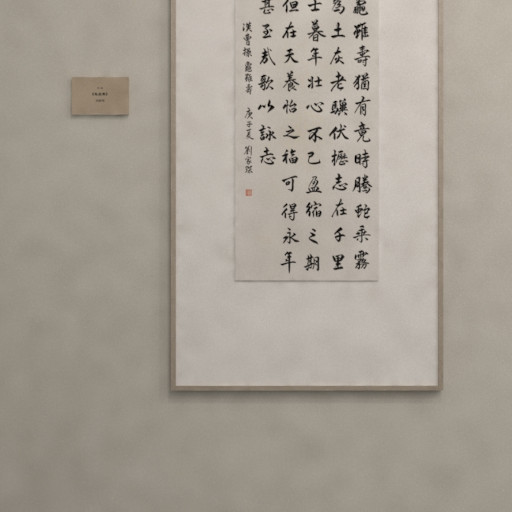 龜雖壽猶有竟時騰蛇乘霧
為土灰老驥伏櫪志在千里
士暮年壯心不已盈縮之期
但在天養怡之福可得永年
甚至哉歌以詠志
漢曹操 龜雖壽 庚子夏 劉家